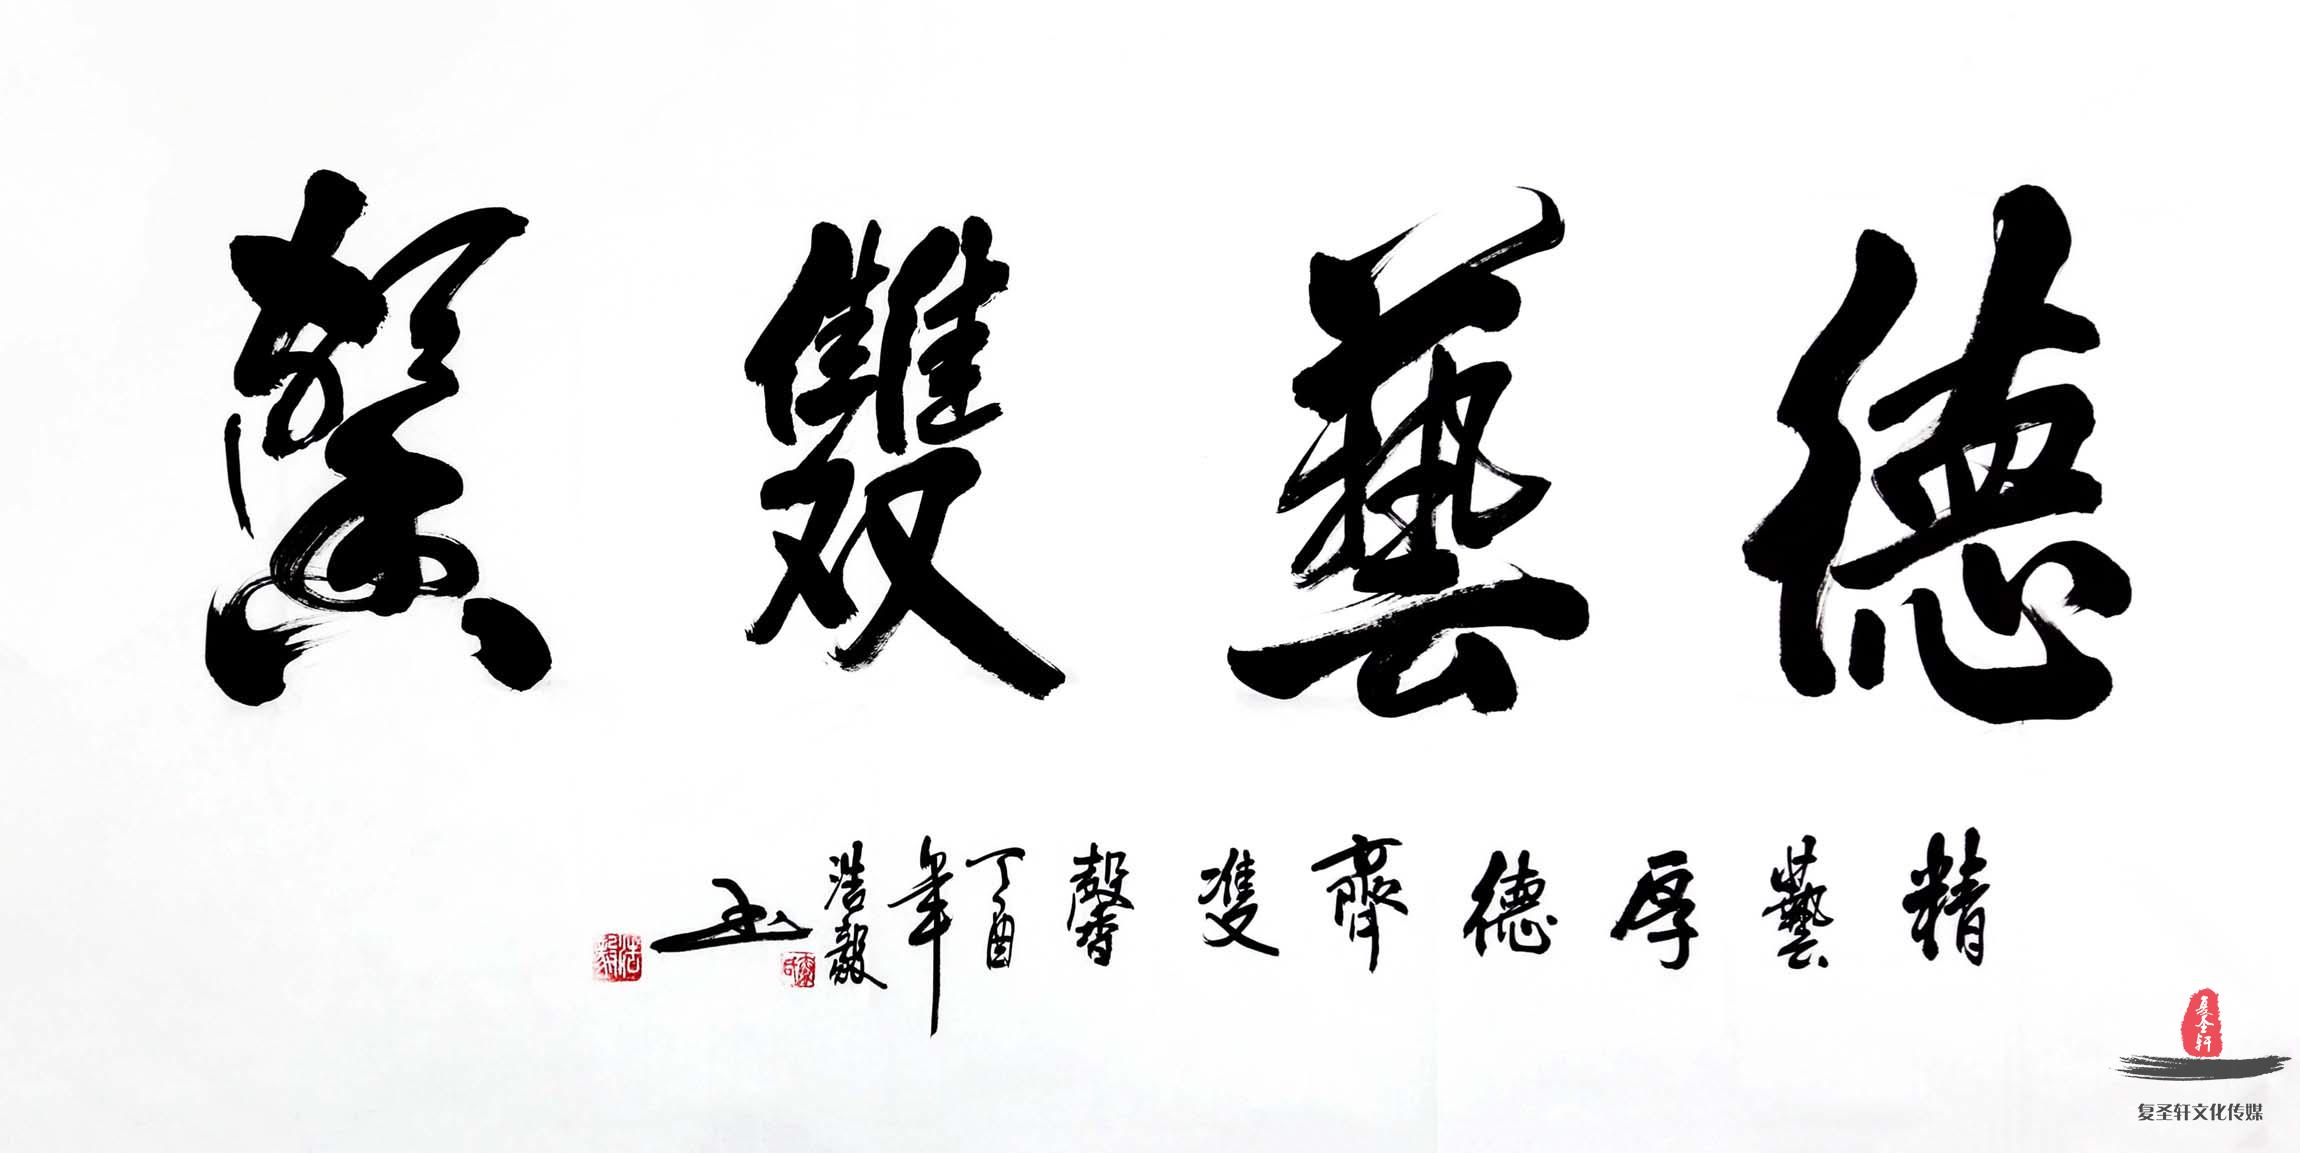 德藝雙馨
精藝厚德齊雙馨
丁酉年
浩毅書
浩毅
复圣轩
复圣轩文化传媒